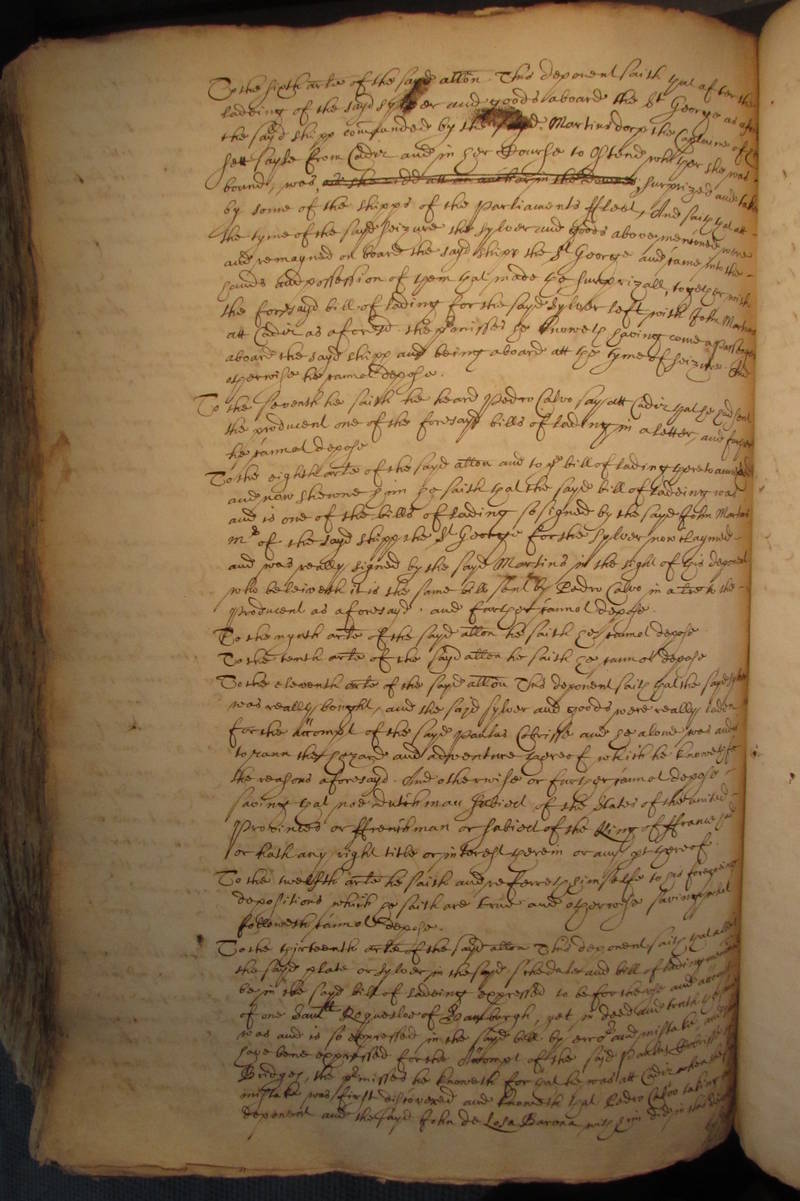 To the sixth arle of the sayd allon This deponent saith that after the
ladeing of the sayd sylver and goods aboard the St George as afore
the sayd shipp commanded by the sayd Martinsdorp the Captaine of
sett sayle from Cadiz and in her Course to Ostend whither she was
bound, was, as she ridd att an anchor in the Downes, surprized and taken
by some of the shipps of the Parliaments ffleet, And saith that att
the tyme of the sayd seizure the sylver and goods abovementioned were
and remayned on board the sayd shipp the St George and came into the
hands and possession of them that made the surprizall, together with
the foresayd bill of lading for the sayd sylver left with John Martins
att Cadiz as aforesd the pmisses he knoweth having come a passenger
aboard the sayd shipp and being aboard att the tyme of seizure. And
otherwise he cannot depose.
To the seventh he saith he heard Pedro Calvo say att Cadiz that he had sent
the producent one of the foresayd bills of lading in a letter, and further
he cannot depose
To the eighth arle of the sayd allon and to ye bill of lading thereto annexed
and now shewne him he saith that the sayd bill of ladeing was
and is one of the bills of lading so signed by the sayd John Martins
Mr of the sayd shipp the St George for the sylver now claymed
and was really signed by the sayd Martins in the sight of this deponent
who beleiveth it is the same bill sent by Pedro Calvo in a lre to the
producent as aforesayd. and further cannot depose.
To the nynth arle of the sayd allon he saith he cannot depose
To the tenth arle of the sayd allon he saith he cannot depose
To the eleventh arle of the sayd allon This deponent saith that the sayd sylver
was really bought, and the sayd sylver and goods were really laden
for the Accompt of the sayd Paulus Cobrisse and he alone was and is
to runn the hazard and adventure thereof which he knoweth for
the reasons aforesayd. And otherwise or further cannot depose
saving that noe Dutchman Subiect of the States of the united
Provinces or ffrenchman or subiect of the King of ffrance had
or hath any right title or interest therein or any pt thereof.
To the twelfth arle he saith and referreth himselfe to his foregoing
depositions which he saith are true and otherwise saving what
followeth cannot depose.
To the thirteenth arle of the sayd allon This deponent saith that albeit
the sayd plate or sylver in the sayd schedule and bill of lading mentioned
be in the sayd bill of ladeing expressed to be for the use and accompt
of one Requesloe of Hamburgh, yet in deed and truth the same
was and is so expressed in the sayd bill by error and mistake and should
have bene expressed for the Accompt of the sayd Paulus Cobrisse of
Bridges, the pmisses he knoweth for that he was att Cadiz when the sayd
mistake was first discovered and knoweth that Pedro Calvo taking this
deponent and the sayd John de Losa Barona with him did in this